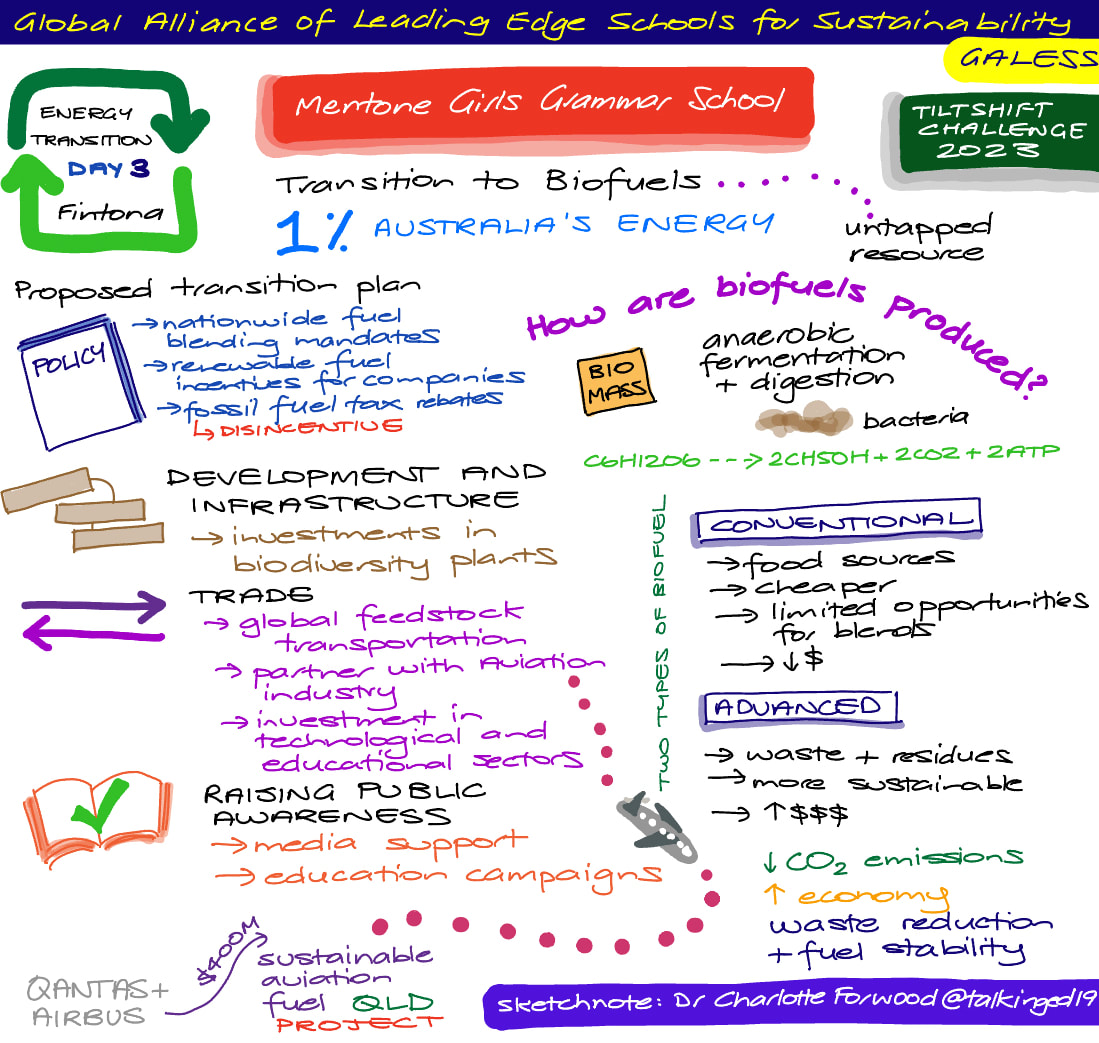 Global Alliance of Leading Edge Schools for Sustainability
GALESS
ENERGY
TRANSITION
DAY 3
Fintona
Mentone Girls Grammar School
TILTSHIFT
CHALLENGE
2023
Transition to Biofuels
1% AUSTRALIA'S ENERGY
untapped
resource
Proposed transition plan
POLICY
→nationwide fuel
blending mandates
→renewable fuel
incentives for companies
→fossil fuel tax rebates
↳DISINCENTIVE
DEVELOPMENT AND
INFRASTRUCTURE
→investments in
biodiversity plants
TRADE
→global feedstock
transportation
→partner with Aviation
industry
→investment in
technological and
educational sectors
RAISING PUBLIC
AWARENESS
→media support
→education campaigns
QANTAS+
AIRBUS
$400M
sustainable
aviation
fuel QLD
PROJECT
How are biofuels produced?
BIO
MASS
anaerobic
fermentation
+ digestion
bacteria
C6H12O6 ---> 2CH5OH + 2CO2 + 2ATP
TWO TYPES OF BIOFUEL
CONVENTIONAL
→food sources
→cheaper
→limited opportunities
for blends
→↓$
ADVANCED
→waste + residues
→more sustainable
→↑$$$
↓CO2 emissions
↑economy
waste reduction
+fuel stability
sketchnote: Dr Charlotte Forwood @talkinged19